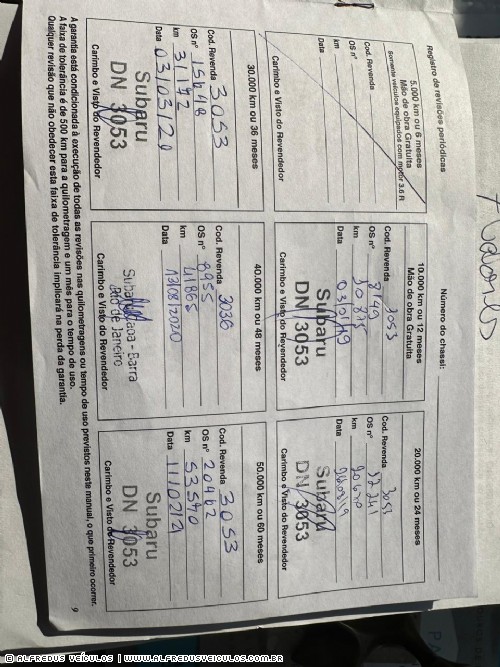 Registro de revisões periódicas
Número do chassi:
5.000 km ou 6 meses
Mão de obra Gratuita
Somente veículos equipados com motor 3.6 R
Cod. Revenda
OS nº
km
Data
Carimbo e Visto do Revendedor
10.000 km ou 12 meses
Mão de obra Gratuita
Cod. Revenda 3053
OS nº 8149
km
Data
Subaru
DN 3053
Carimbo e Visto do Revendedor
20.000 km ou 24 meses
Cod. Revenda 3053
OS nº
km
Data
Subaru
DN 3053
Carimbo e Visto do Revendedor
30.000 km ou 36 meses
Cod. Revenda 3053
OS nº
km 31172
Data 03/03/20
Subaru
DN 3053
Carimbo e Visto do Revendedor
40.000 km ou 48 meses
Cod. Revenda 3036
OS nº 8955
km 41865
Data 13/08/2020
Barra
Rio de Janeiro
Carimbo e Visto do Revendedor
50.000 km ou 60 meses
Cod. Revenda 3053
OS nº 20402
km 53540
Data 11/02/21
Subaru
DN 3053
Carimbo e Visto do Revendedor
A garantia está condicionada à execução de todas as revisões nas quilometragens ou tempo de uso previstos neste manual, o que primeiro ocorrer.
A faixa de tolerância é de 500 km para a quilometragem e um mês para o tempo de uso.
Qualquer revisão que não obedecer esta faixa de tolerância implicará na perda da garantia.
9
© ALFREDUS VEÍCULOS | WWW.ALFREDUSVEICULOS.COM.BR